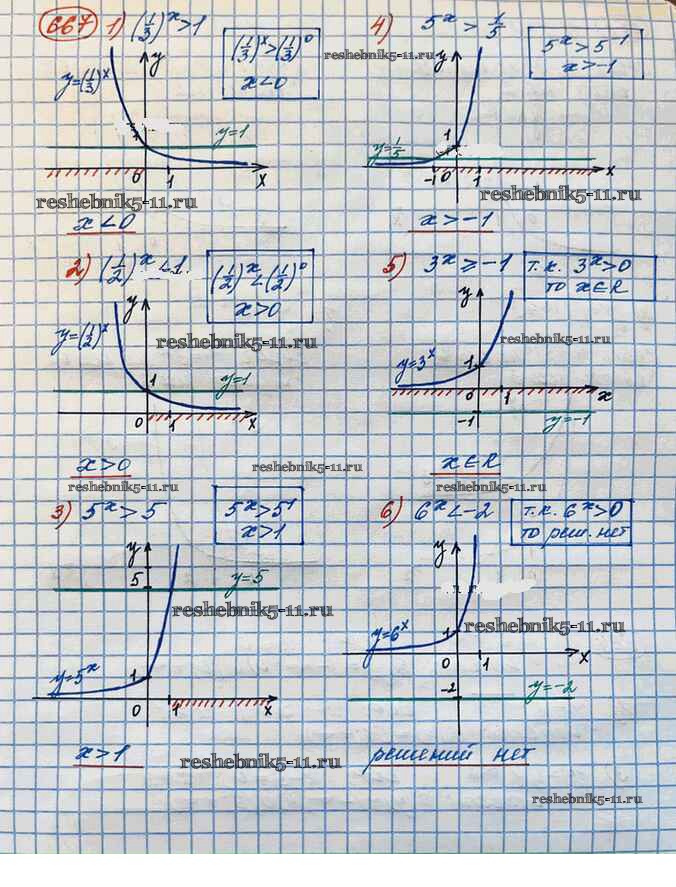 667 1) (1/3)^x > 1
(1/3)^x > (1/3)^0
x < 0
y
y=(1/3)^x
1
y=1
0 1 x
reshebnik5-11.ru
x < 0
2) (1/2)^x < 1.
(1/2)^x < (1/2)^0
x > 0
y
y=(1/2)^x
reshebnik5-11.ru
1
y=1
0 1 x
x > 0
reshebnik5-11.ru
reshebnik5-11.ru
3) 5^x > 5
5^x > 5^1
x > 1
y
5
y=5
reshebnik5-11.ru
y=5^x
1
0 1 x
x > 1
reshebnik5-11.ru
4) 5^x > 1/5
5^x > 5^-1
x > -1
reshebnik5-11.ru
y
1
y=1/5
-1 0 1 x
reshebnik5-11.ru
x > -1
5) 3^x ⩾ -1
т.к. 3^x > 0
то x∈R
y
reshebnik5-11.ru
y=3^x
1
0 1 x
-1
y=-1
x∈R
6) 6^x < -2
т.к. 6^x > 0
то реш. нет
y
reshebnik5-11.ru
y=6^x
1
0 1 x
-2
y=-2
решений нет
reshebnik5-11.ru